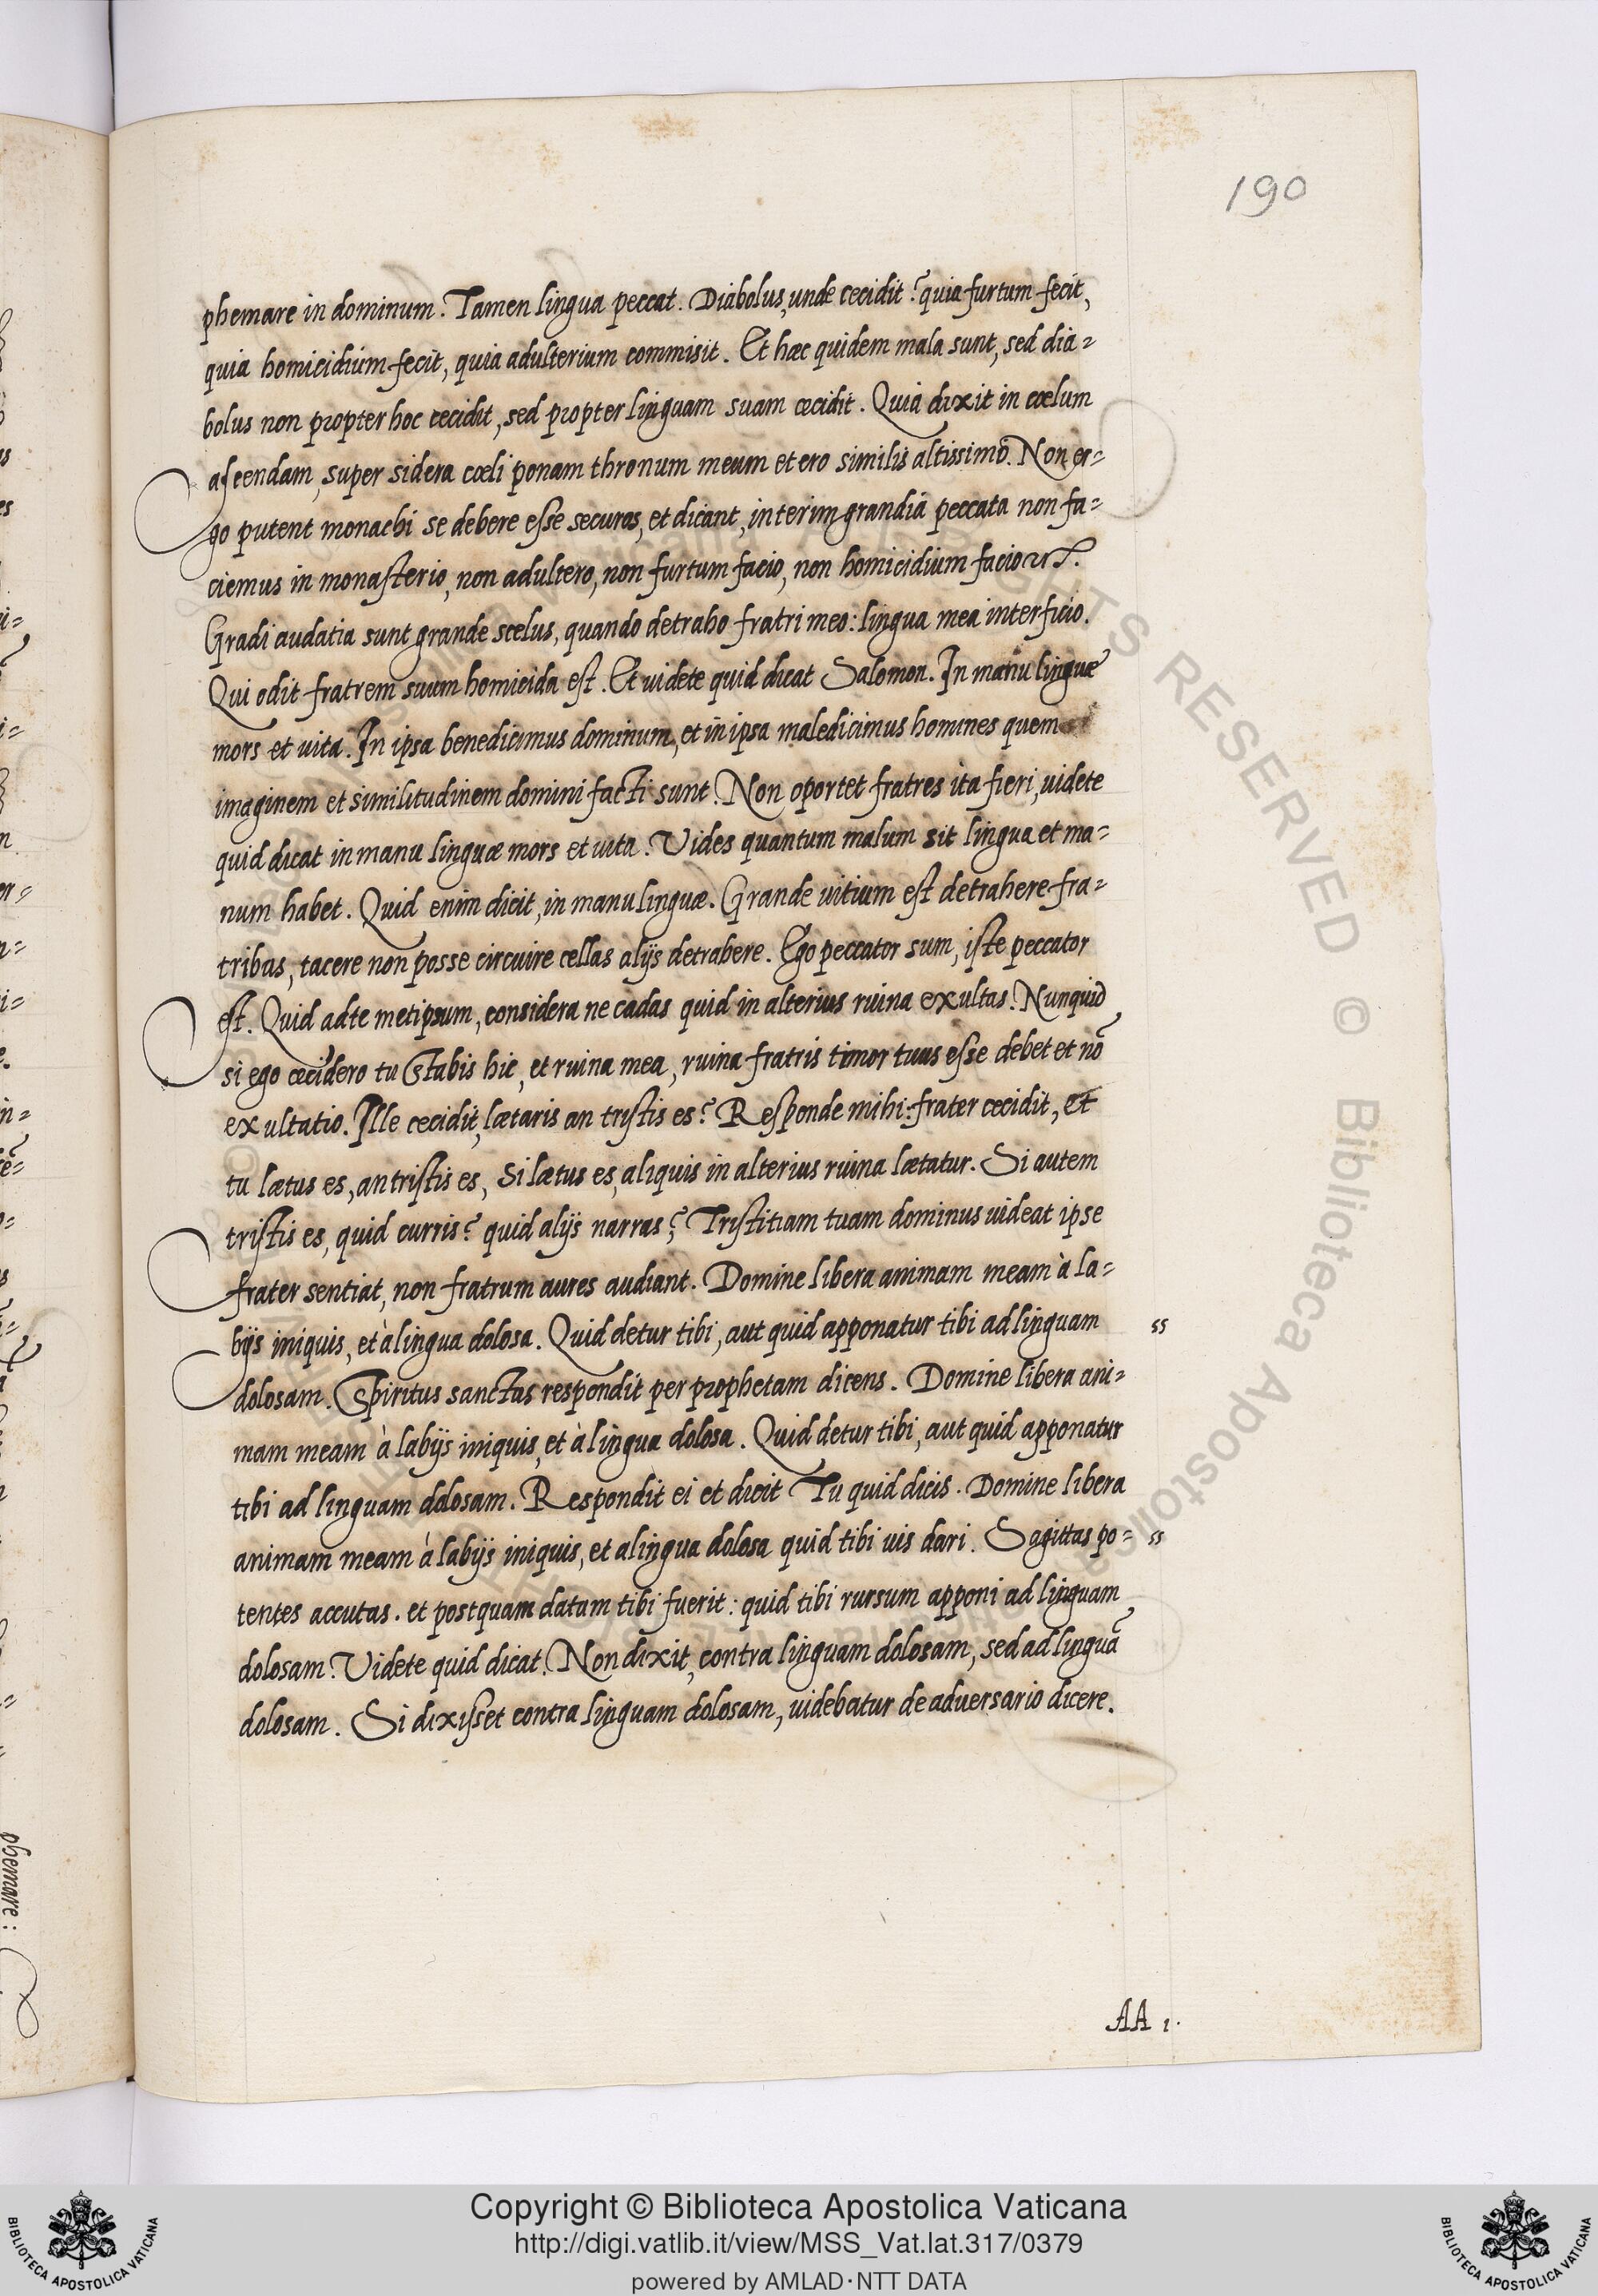 190
phemare in dominum. Tamen lingua peccat. Diabolus, unde cecidit? quia furtum fecit,
quia homicidium fecit, quia adulterium commisit. Et hæc quidem mala sunt, sed dia=
bolus non propter hoc cecidit, sed propter linguam suam cecidit. Quia dixit in cœlum
ascendam, super sidera cœli ponam thronum meum et ero similis altissimo. Non er=
go putent monachi se debere esse securos, et dicant, interim grandia peccata non fa=
ciemus in monasterio, non adultero, non furtum facio, non homicidium facio
Gradi audatia sunt grande scelus, quando detraho fratri meo: lingua mea interficio.
Qui odit fratrem suum homicida est. Et uidete quid dicat Salomon. In manu linguæ
mors et uita. In ipsa benedicimus dominum, et in ipsa maledicimus homines quem
imaginem et similitudinem domini facti sunt. Non oportet fratres ita fieri, uidete
quid dicat in manu linguæ mors et uita. Vides quantum malum sit lingua et ma=
num habet. Quid enim dicit, in manu linguæ. Grande uitium est detrahere fra=
tribus, tacere non posse circuire cellas alijs detrahere. Ego peccator sum, iste peccator
est. Quid ad te metipsum, considera ne cadas quid in alterius ruina exultas. Nunquid
si ego cecidero tu stabis hic, et ruina mea, ruina fratris timor tuus esse debet et nõ
exultatio. Ille cecidit, lætaris an tristis es? Responde mihi: frater cecidit, et
tu lætus es, an tristis es, Si lætus es, aliquis in alterius ruina lætatur. Si autem
tristis es, quid curris? quid alijs narras? Tristitiam tuam dominus uideat ipse
frater sentiat, non fratrum aures audiant. Domine libera animam meam à la=
bijs iniquis, et à lingua dolosa. Quid detur tibi, aut quid apponatur tibi ad linguam ss
dolosam. Spiritus sanctus respondit per prophetam dicens. Domine libera ani=
mam meam à labijs iniquis, et à lingua dolosa. Quid detur tibi, aut quid apponatur
tibi ad linguam dolosam. Respondit ei et dicit Tu quid dicis. Domine libera
animam meam à labijs iniquis, et a lingua dolosa quid tibi uis dari. Sagittas po= ss
tentes accutas. et postquam datum tibi fuerit: quid tibi rursum apponi ad linguam
dolosam. Videte quid dicat. Non dixit, contra linguam dolosam, sed ad linguã
dolosam. Si dixisset contra linguam dolosam, uidebatur de aduersario dicere.
AA 1.
phemare:
RIGHTS RESERVED © Biblioteca Apostolica
Copyright © Biblioteca Apostolica Vaticana
http://digi.vatlib.it/view/MSS_Vat.lat.317/0379
powered by AMLAD·NTT DATA
BIBLIOTECA APOSTOLICA VATICANA
BIBLIOTECA APOSTOLICA VATICANA